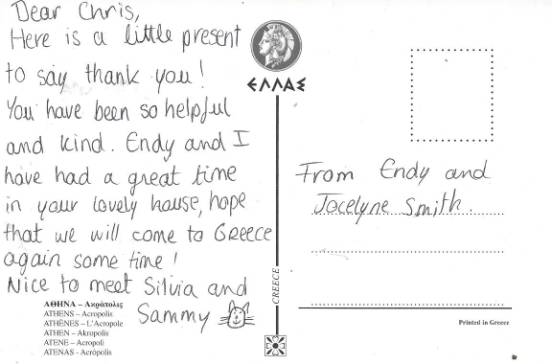 Dear Chris,
Here is a little present
to say thank you!
You have been so helpful
and kind. Endy and I
have had a great time
in your lovely house, hope
that we will come to Greece
again some time!
Nice to meet Silvia and
Sammy
ΑΘΗΝΑ – Ακρόπολις
ATHENS – Acropolis
ATHÈNES – L'Acropole
ATHEN – Akropolis
ATENE – Acropoli
ATENAS – Acrópolis
ΕΛΛΑΣ
GREECE
From Endy and
Jocelyne Smith.
Printed in Greece